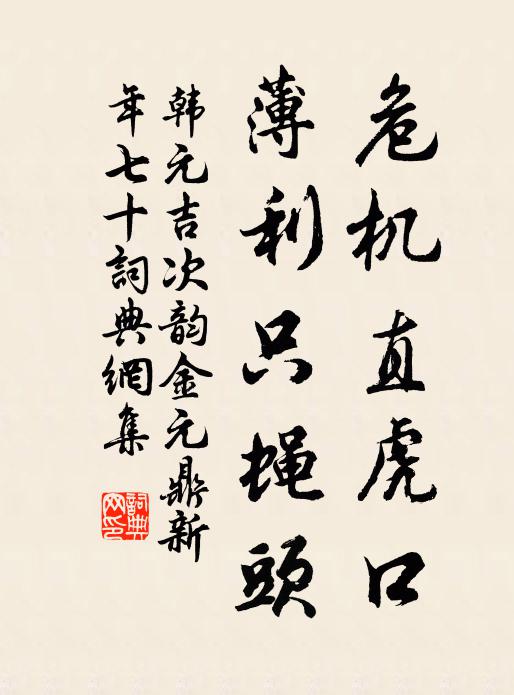 危机直虎口
薄利只蝇頭
韩元吉次韵金元鼎新
年七十詞典網集
詞典
网印